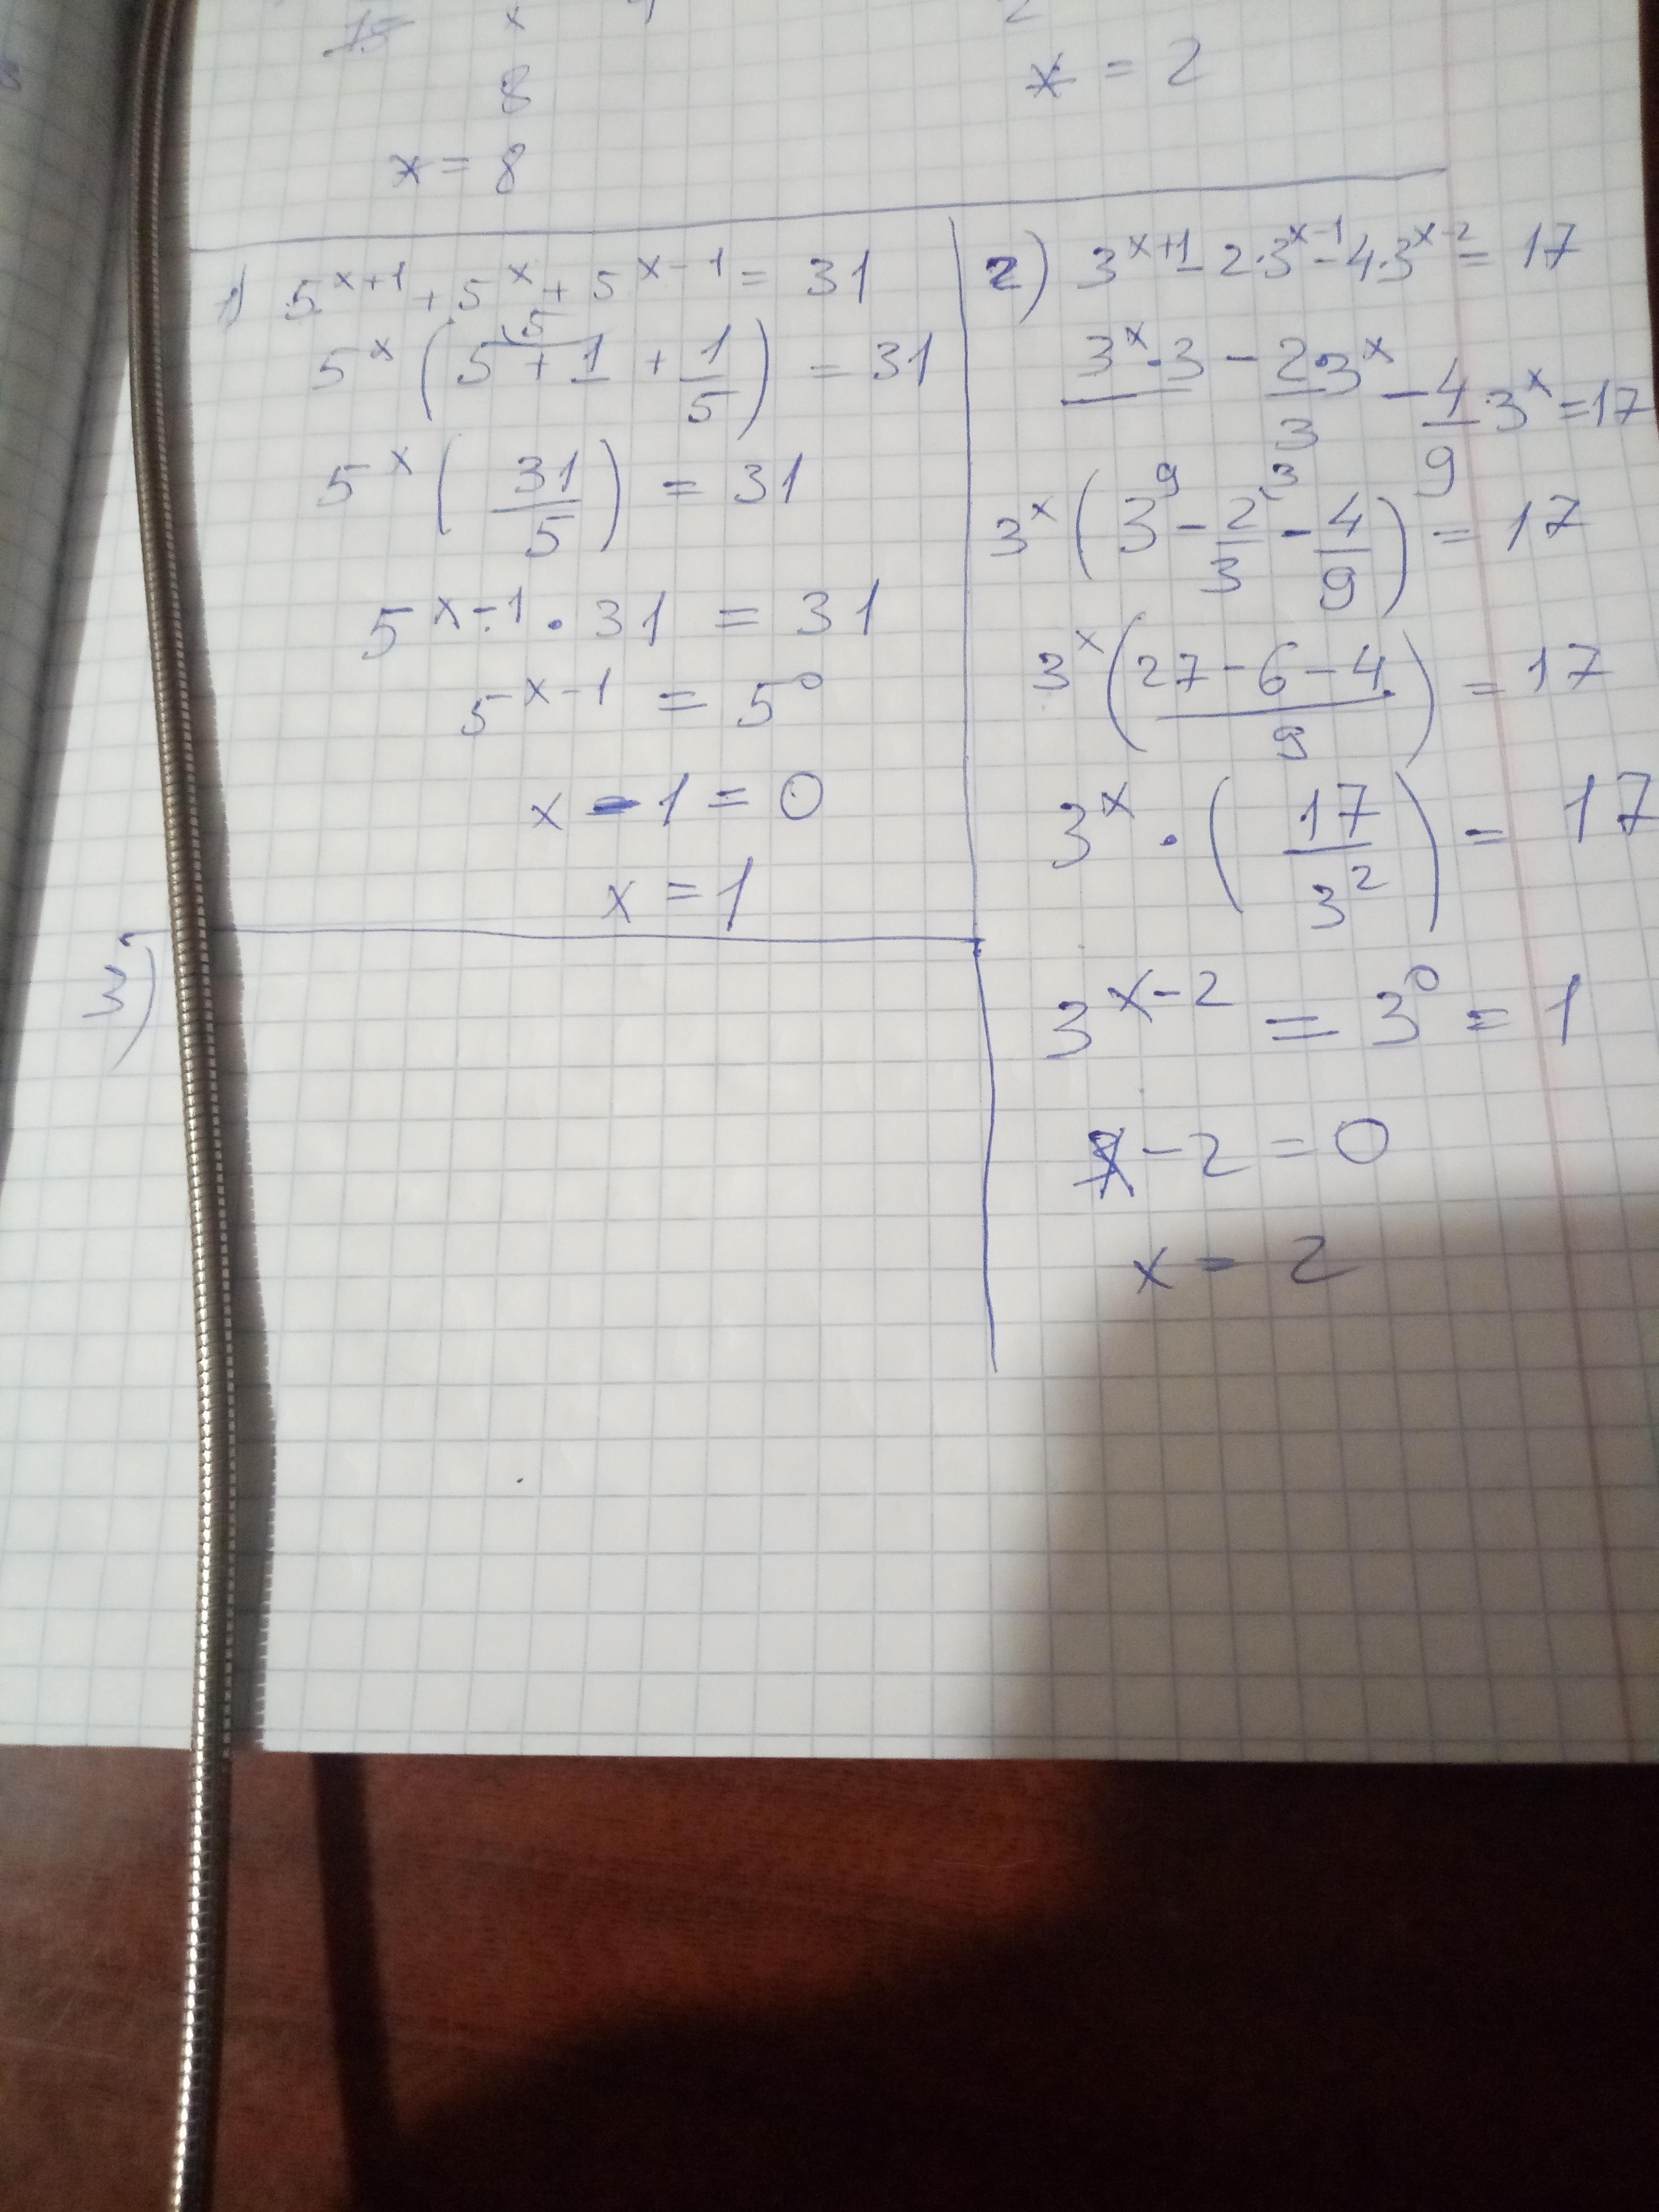 x 4 2
8 x = 2
x = 8
1) 5^(x+1) + 5^x + 5^(x-1) = 31
5^x (5 + 1 + 1/5) = 31
5^x (31/5) = 31
5^(x-1) · 31 = 31
5^(x-1) = 5^0
x - 1 = 0
x = 1
2) 3^(x+1) - 2·3^(x-1) - 4·3^(x-2) = 17
3^x·3 - 2/3·3^x - 4/9·3^x = 17
3^x (3^9 - 2^3/3 - 4/9) = 17
3^x ((27 - 6 - 4)/9) = 17
3^x · (17/3^2) = 17
3^(x-2) = 3^0 = 1
x - 2 = 0
x = 2
3)